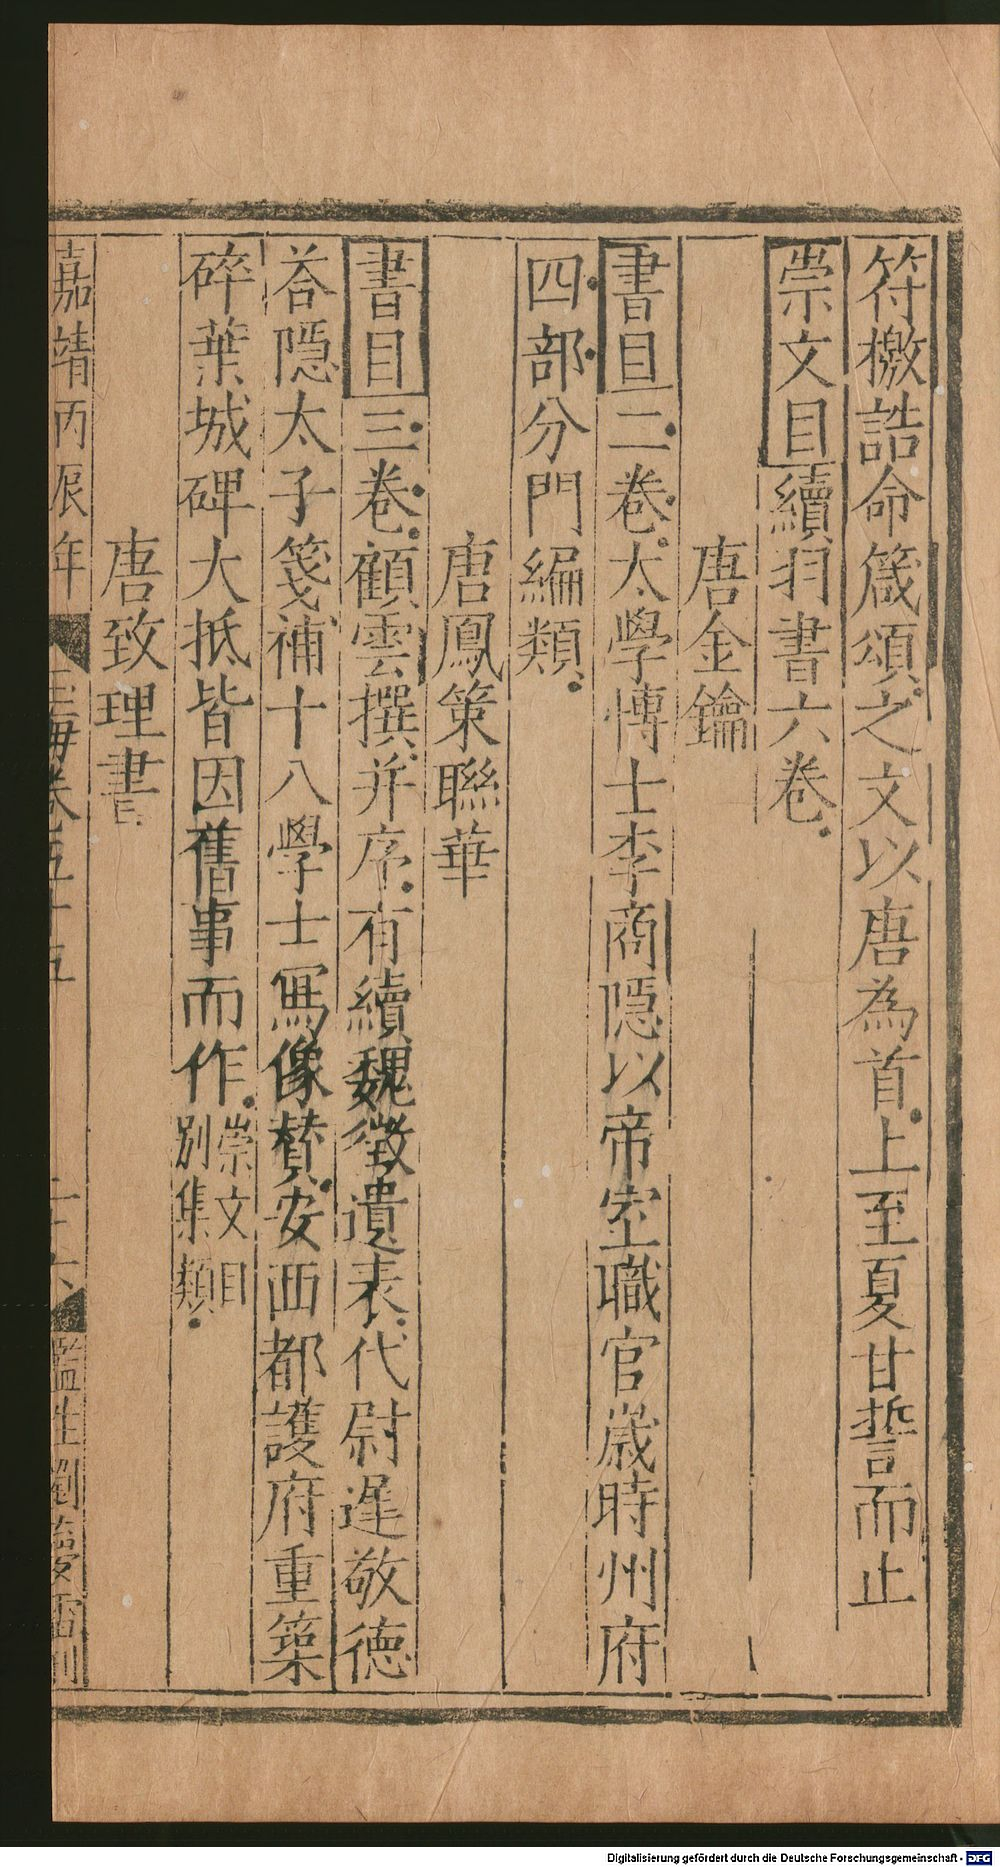 符檄誥命箴頌之文以唐為首上至夏甘誓而止
崇文目續羽書六卷
唐金鑰
書目二卷太學博士李商隱以帝室職官歲時州府
四部分門編類
唐鳳策聯華
書目三卷顧雲撰并序有續魏徵遺表代尉遲敬德
荅隱太子箋補十八學士寫像賛安西都護府重築
碎葉城碑大抵皆因舊事而作崇文目
別集類
唐致理書
嘉靖丙辰年
玉海卷五十五
二十六
監生劉
Digitalisierung gefördert durch die Deutsche Forschungsgemeinschaft - DFG